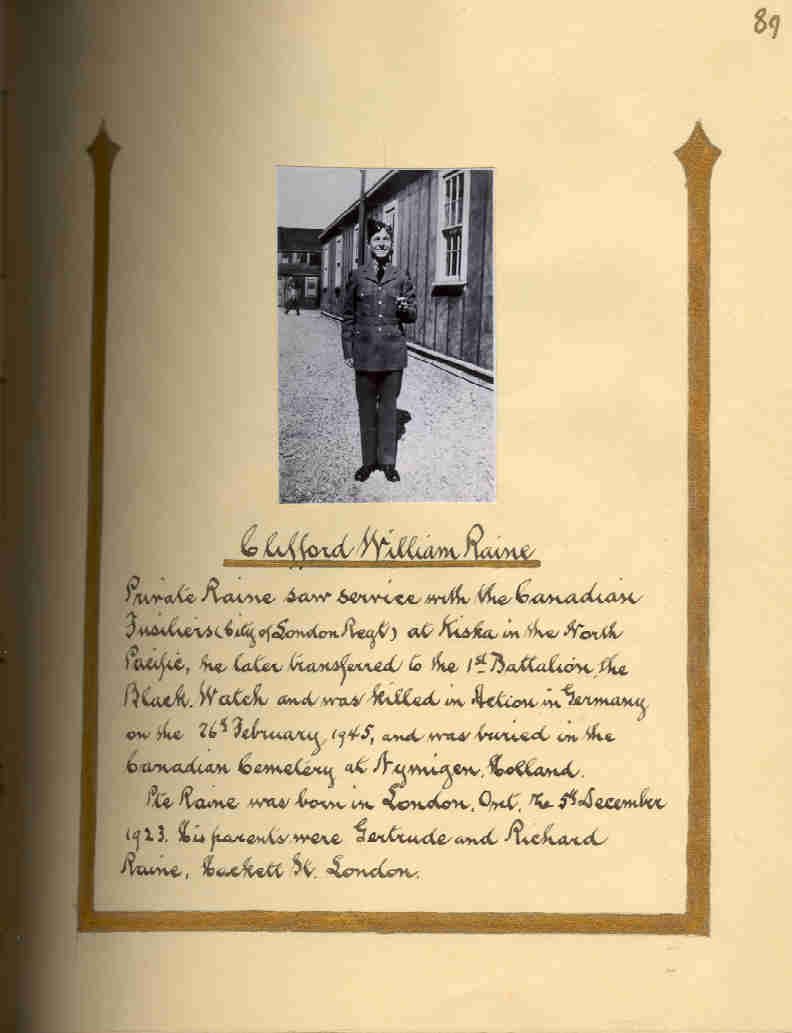 89
Clifford William Raine
Private Raine saw service with the Canadian
Fusiliers (City of London Regt) at Kiska in the North
Pacific, he later transferred to the 1st Battalion, the
Black. Watch and was killed in Action in Germany
on the 26th February, 1945, and was buried in the
Canadian Cemetery at Nymigen, Holland.
Pte Raine was born in London, Ont, the 5th December
1923. His parents were Gertrude and Richard
Raine, Hackett St. London.